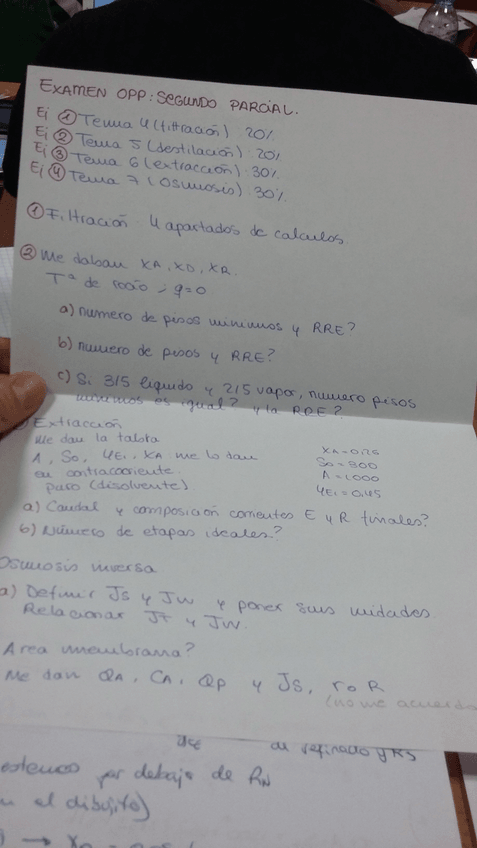 EXAMEN OPP: SEGUNDO PARCIAL.
Ej ① Tema 4 (filtración) 20%
Ej ② Tema 5 (destilación) 20%
Ej ③ Tema 6 (extracción) 30%
Ej ④ Tema 7 (Osmosis) 30%
① Filtración 4 apartados de calculos.
② Me daban XA, XD, XR.
Tª de rocío → q=0
a) numero de pisos minimos y RRE?
b) numero de pisos y RRE?
c) Si 3/5 liquido y 2/5 vapor, numero pisos
minimos es igual? y la RRE?
Extracción
Me dan la tabla
A, So, YEi, XA me lo dan
en contracorriente.
puro (disolvente)
XA=0,25
So=800
A=1000
YEi=0,45
a) Caudal y composición corrientes E y R finales?
b) Número de etapas ideales?
Osmosis inversa
a) Definir Js y Jw y poner sus unidades
Relacionar Jt y Jw.
Area membrana?
Me dan QA, CA, QP y Js, r o R
(no me acuerdo
de refinado y RS
estemos por debajo de RN
en el dibujito)